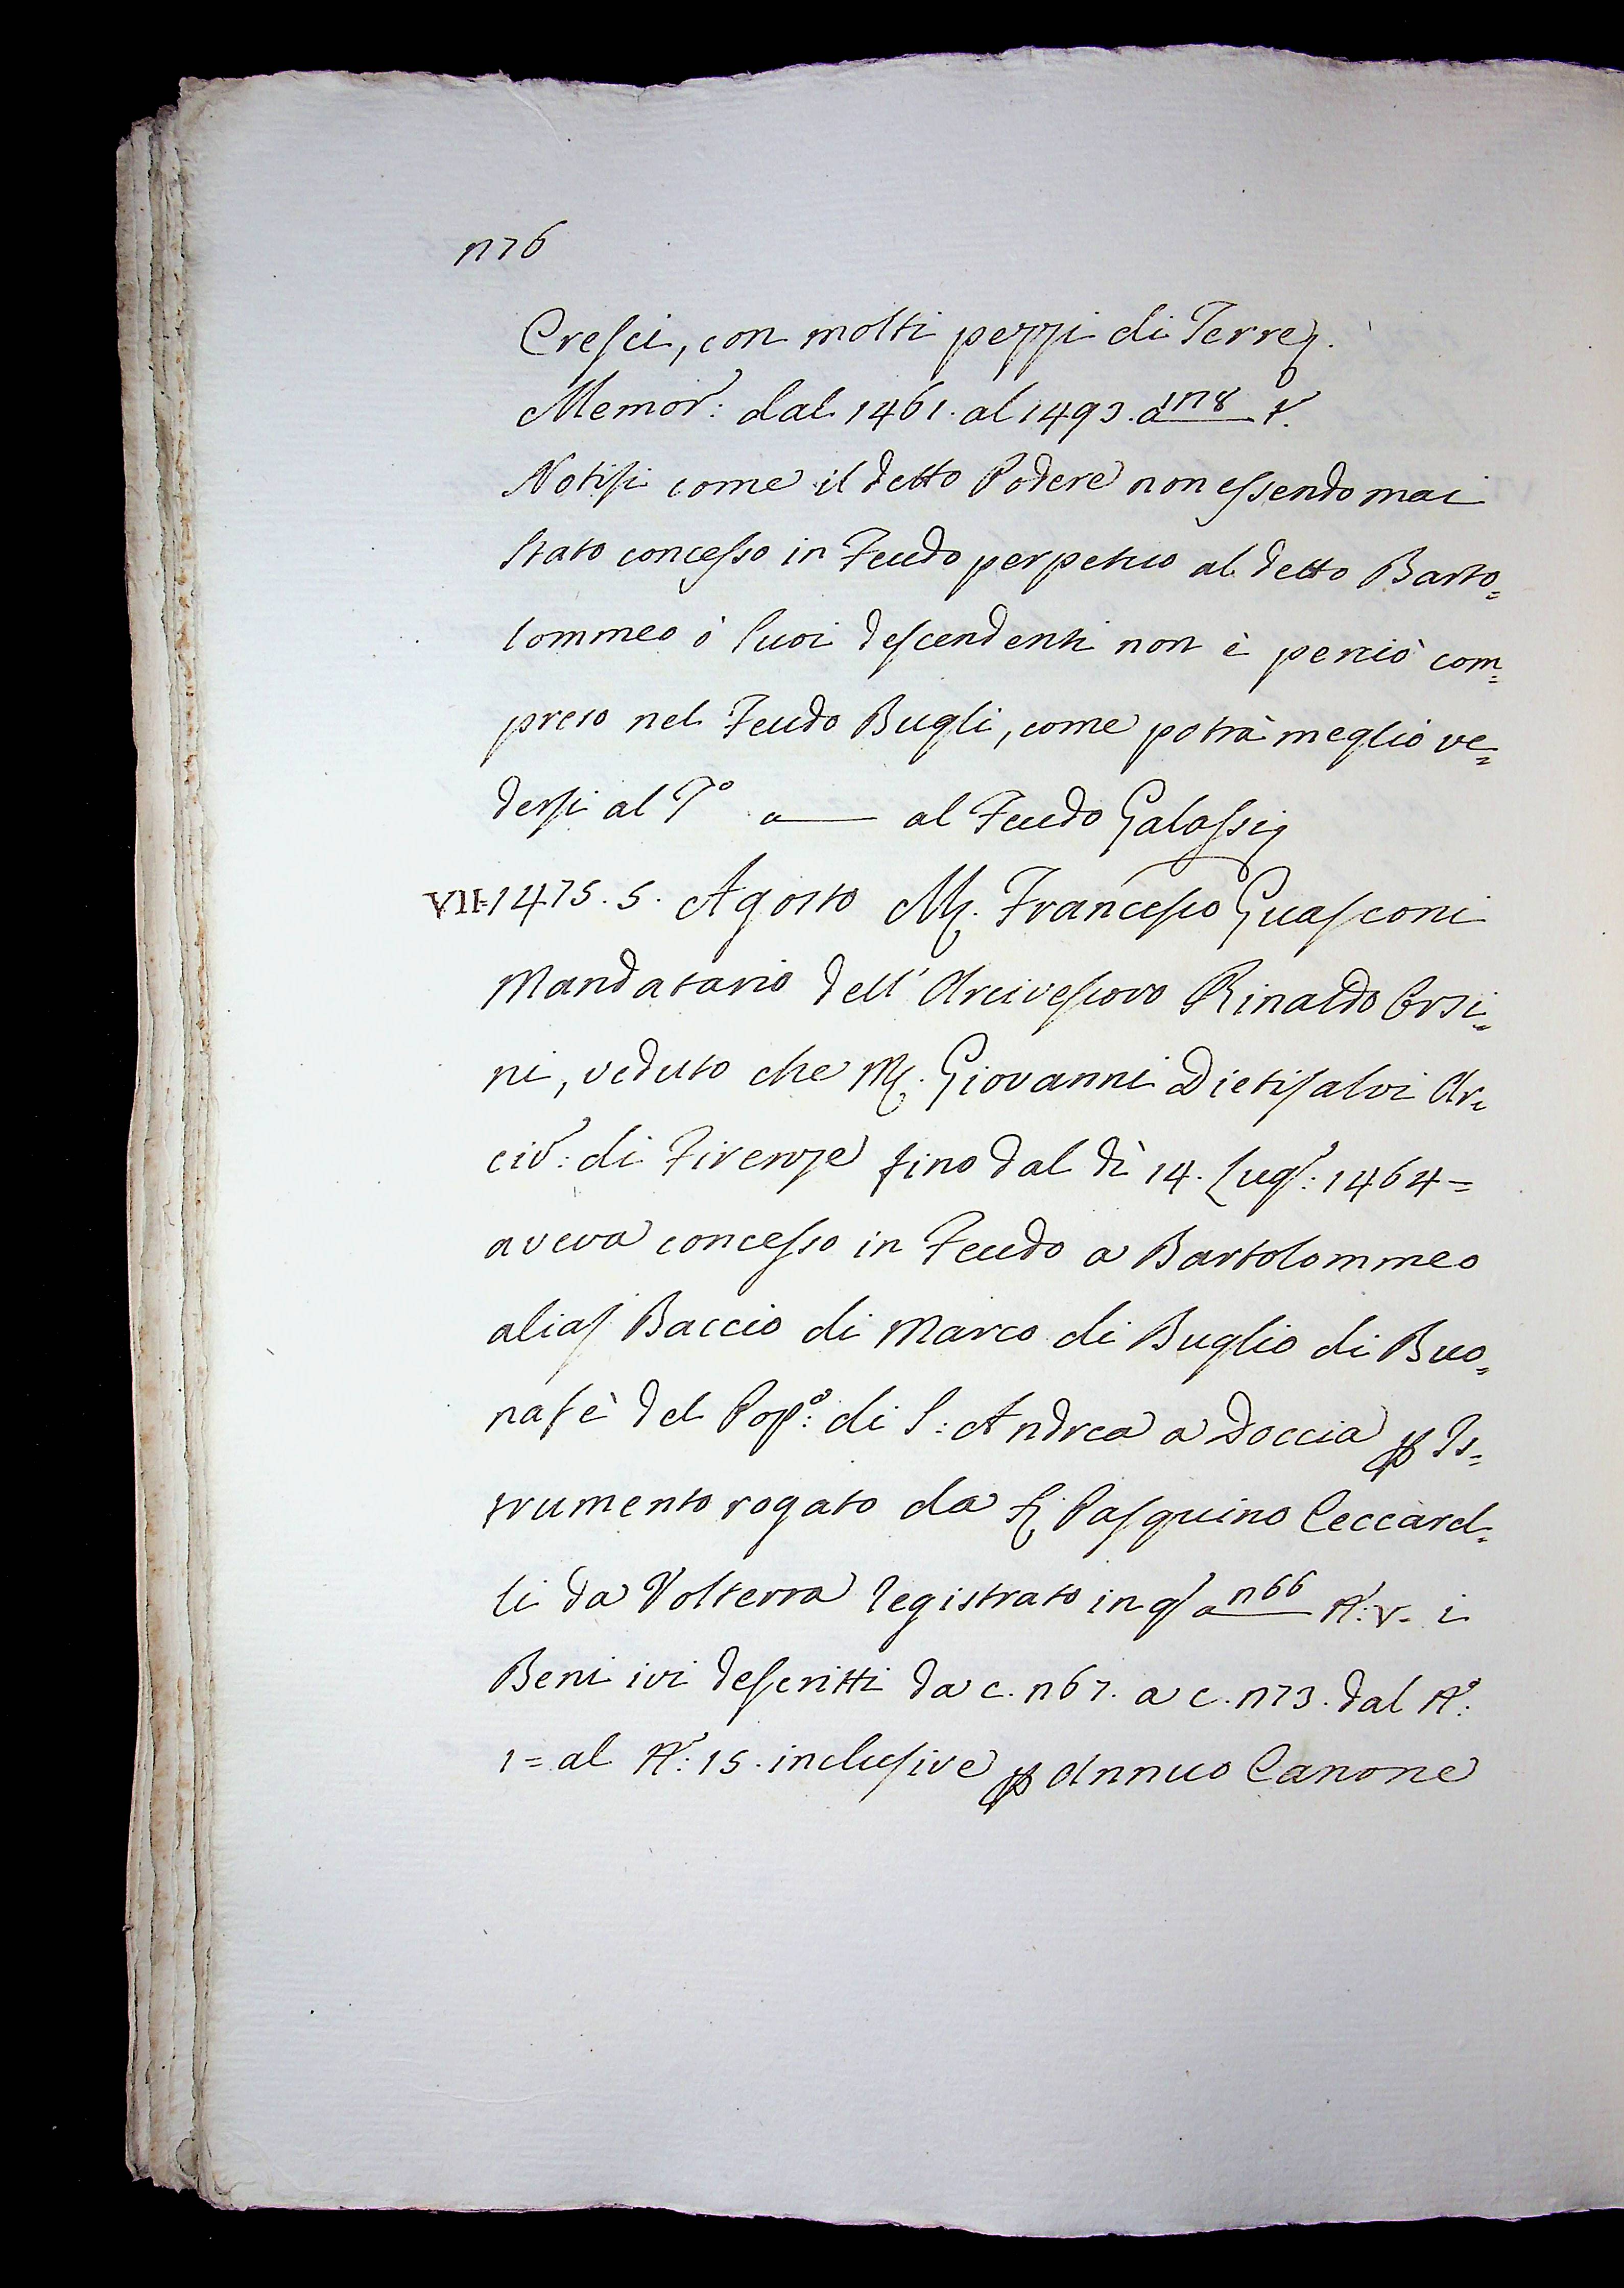 n76
Cresci, con molti pezzi di Terre.
Memor: dal 1461. al 1493. a 1n8 t.
Notisi come il detto Podere non essendo mai
stato concesso in Feudo perpetuo al detto Barto=
lommeo ò suoi descendenti non è perciò com=
preso nel Feudo Bugli, come potrà meglio ve=
dersi al T.o a al Feudo Galassi
VII=1475. 5. Agosto M. Francesco Guasconi
Mandatario dell' Arcivescovo Rinaldo Orsi=
ni, veduto che M. Giovanni Dietisalvi Ar=
civ: di Firenze fino dal dì 14. Lug: 1464=
aveva concesso in Feudo a Bartolommeo
alias Baccio di Marco di Buglio di Buo=
nafè del Pop.o: di S: Andrea a Doccia p Is=
trumento rogato da S. Pasquino Ceccard=
li da Volterra registrato in q a n66 N: V. i
Beni ivi descritti da c. n67. a c. n73. dal N:
1= al N: 15. inclusive p Annuo Canone